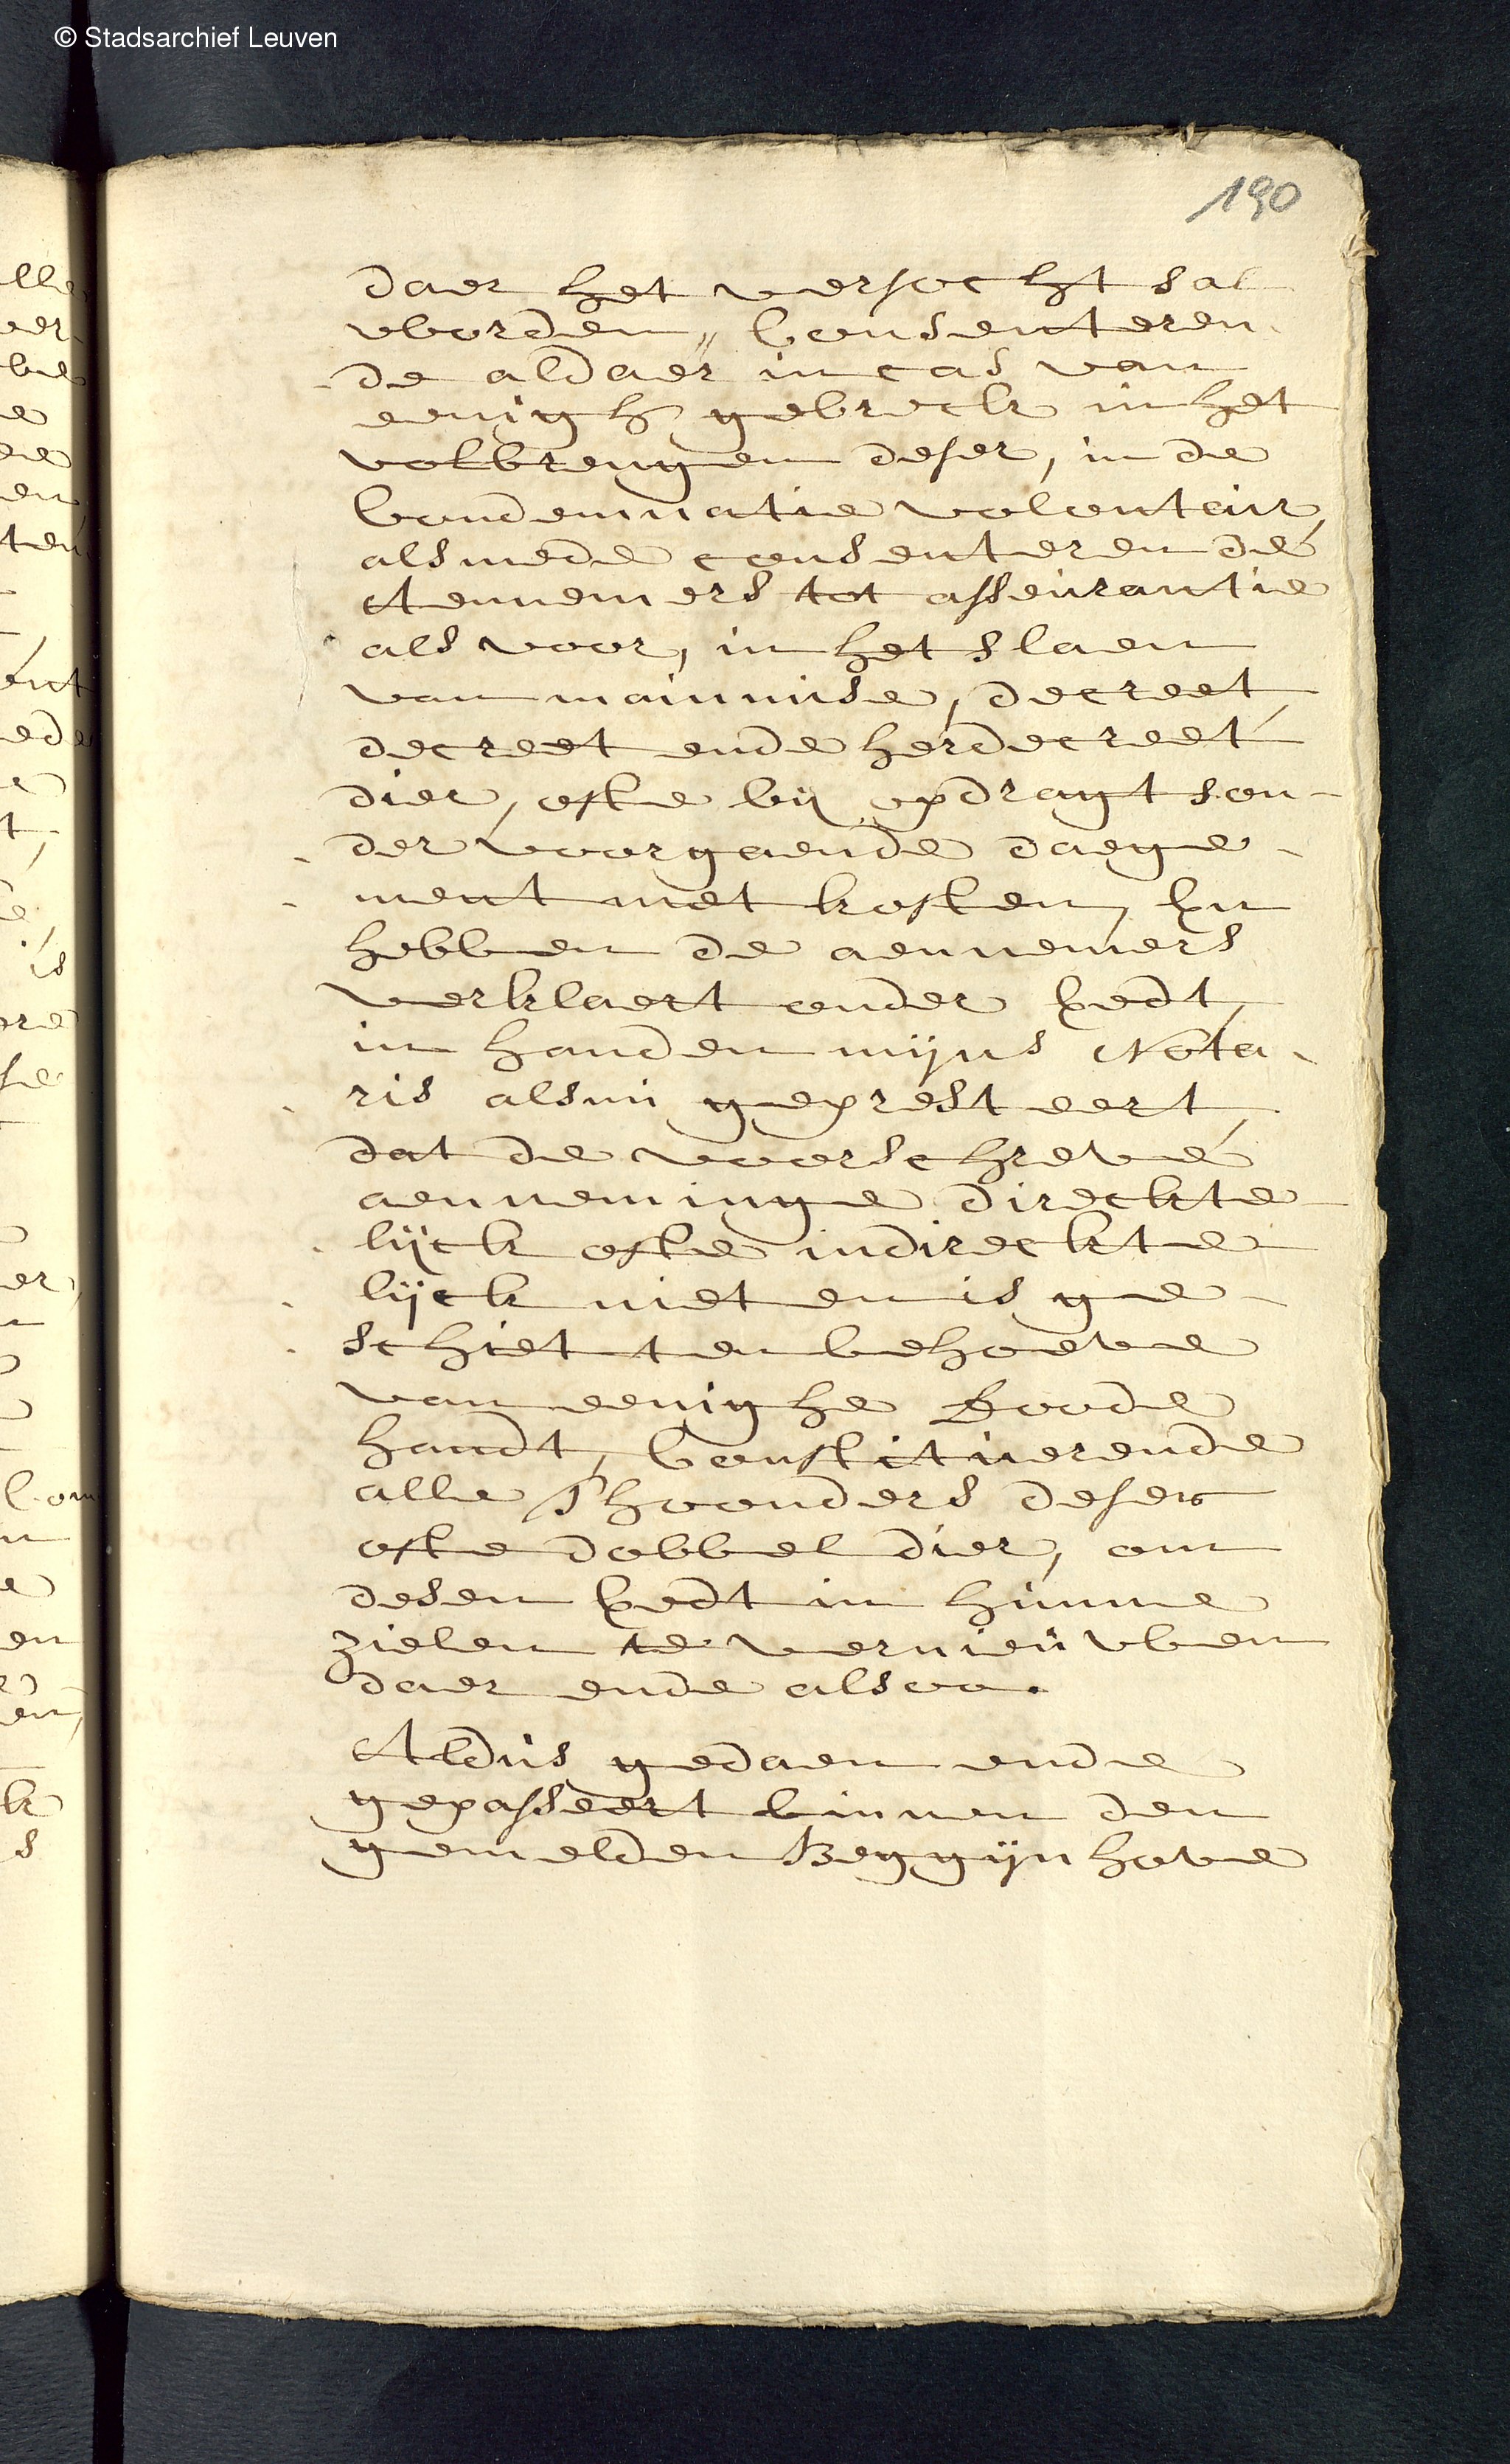 © Stadsarchief Leuven
190
daer het versocht sal
worden, Consenteren-
-de aldaer in cas van
eenigh gebreck in het
volbrengen deser, in de
Condemnatie volontair,
alsmede consenteren de
Aennemers tot asseurantie
als voor, in het slaen
van mainmise, decreet,
decreet ende herdecreet
dier, ofte bij opdragt son-
-der voorgaende daege-
-ment met kosten, En
hebben de aennemers
verklaert onder Eedt,
in handen mijns Nota-
-ris alsnu gepresteert,
dat de voorschreve
aenneminge direckte
-lijck ofte indireckte
-lijck niet en is ge-
-schiet ten behoeve
van eenighe Doode
handt, Constituerende
alle Thoonders deser
ofte dobbel dier, om
desen Eedt in hunne
zielen te vernieuwen
daer ende alsoo.
Aldus gedaen ende
gepasseert binnen den
gemelden Beggijnhove